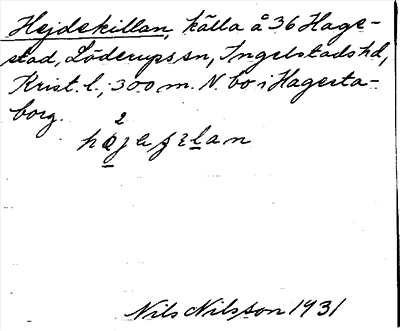 Hejdekillan, källa å 36 Hage-
stad, Löderups sn, Ingelstads hd,
Krist. l., 300 m. N. bo i Hagesta-
borg.
Nils Nilsson 1931